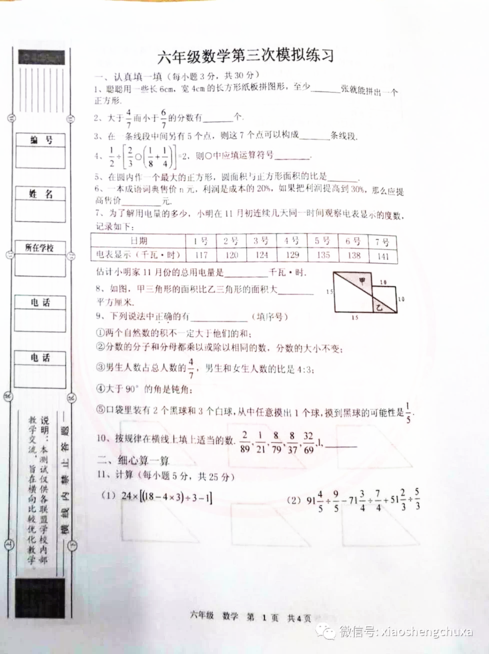 六年级数学第三次模拟练习
一、认真填一填（每小题3分，共30分）
1、聪聪用一些长6cm，宽4cm的长方形纸板拼图形，至少______张就能拼出一个
正方形.
2、大于4/7而小于6/7的分数有______个.
3、在一条线段中间另有5个点，则这7个点可以构成______条线段.
4、1/2÷[2/3○(1/8+1/4)]=2，则○中应填运算符号______.
5、在圆内作一个最大的正方形，圆面积与正方形面积的比是______.
6、一本成语词典售价n元，利润是成本的20%，如果把利润提高到30%，那么应提
高售价______元.
7、为了解用电量的多少，小明在11月初连续几天同一时间观察电表显示的度数，
记录如下：
日期 1号 2号 3号 4号 5号 6号 7号
电表显示（千瓦·时） 117 120 124 129 135 138 141
估计小明家11月份的总用电量是______千瓦·时.
8、如图，甲三角形的面积比乙三角形的面积大______
平方厘米.
甲
乙
15
10
15
9、下列说法中正确的有______（填序号）
①两个自然数的积不一定大于他们的和；
②分数的分子和分母都乘以或除以相同的数，分数的大小不变；
③男生人数占总人数的4/7，男生和女生人数的比是4:3；
④大于90°的角是钝角；
⑤口袋里装有2个黑球和3个白球，从中任意摸出1个球，摸到黑球的可能性是1/5.
10、按规律在横线上填上适当的数. 2/89, 1/21, 8/79, 8/37, 32/69, 1, ______
二、细心算一算
11、计算（每小题5分，共25分）
（1）24×[(18－4×3)÷3－1]
（2）91 4/5÷9/5－71 3/4÷7/4＋51 2/3÷5/3
六年级 数学 第 1 页 共 4 页
编号
姓名
所在学校
电话
电话
说明：本测试仅供各联盟学校内部
教学交流，旨在横向比较优化教学。
横线内禁止答题
微信号: xiaoshengchuxa